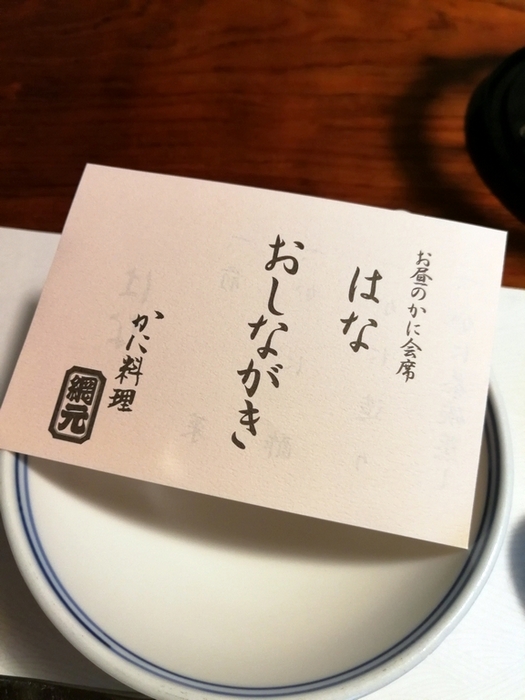 お昼のかに会席
はな
おしながき
かに料理
網元